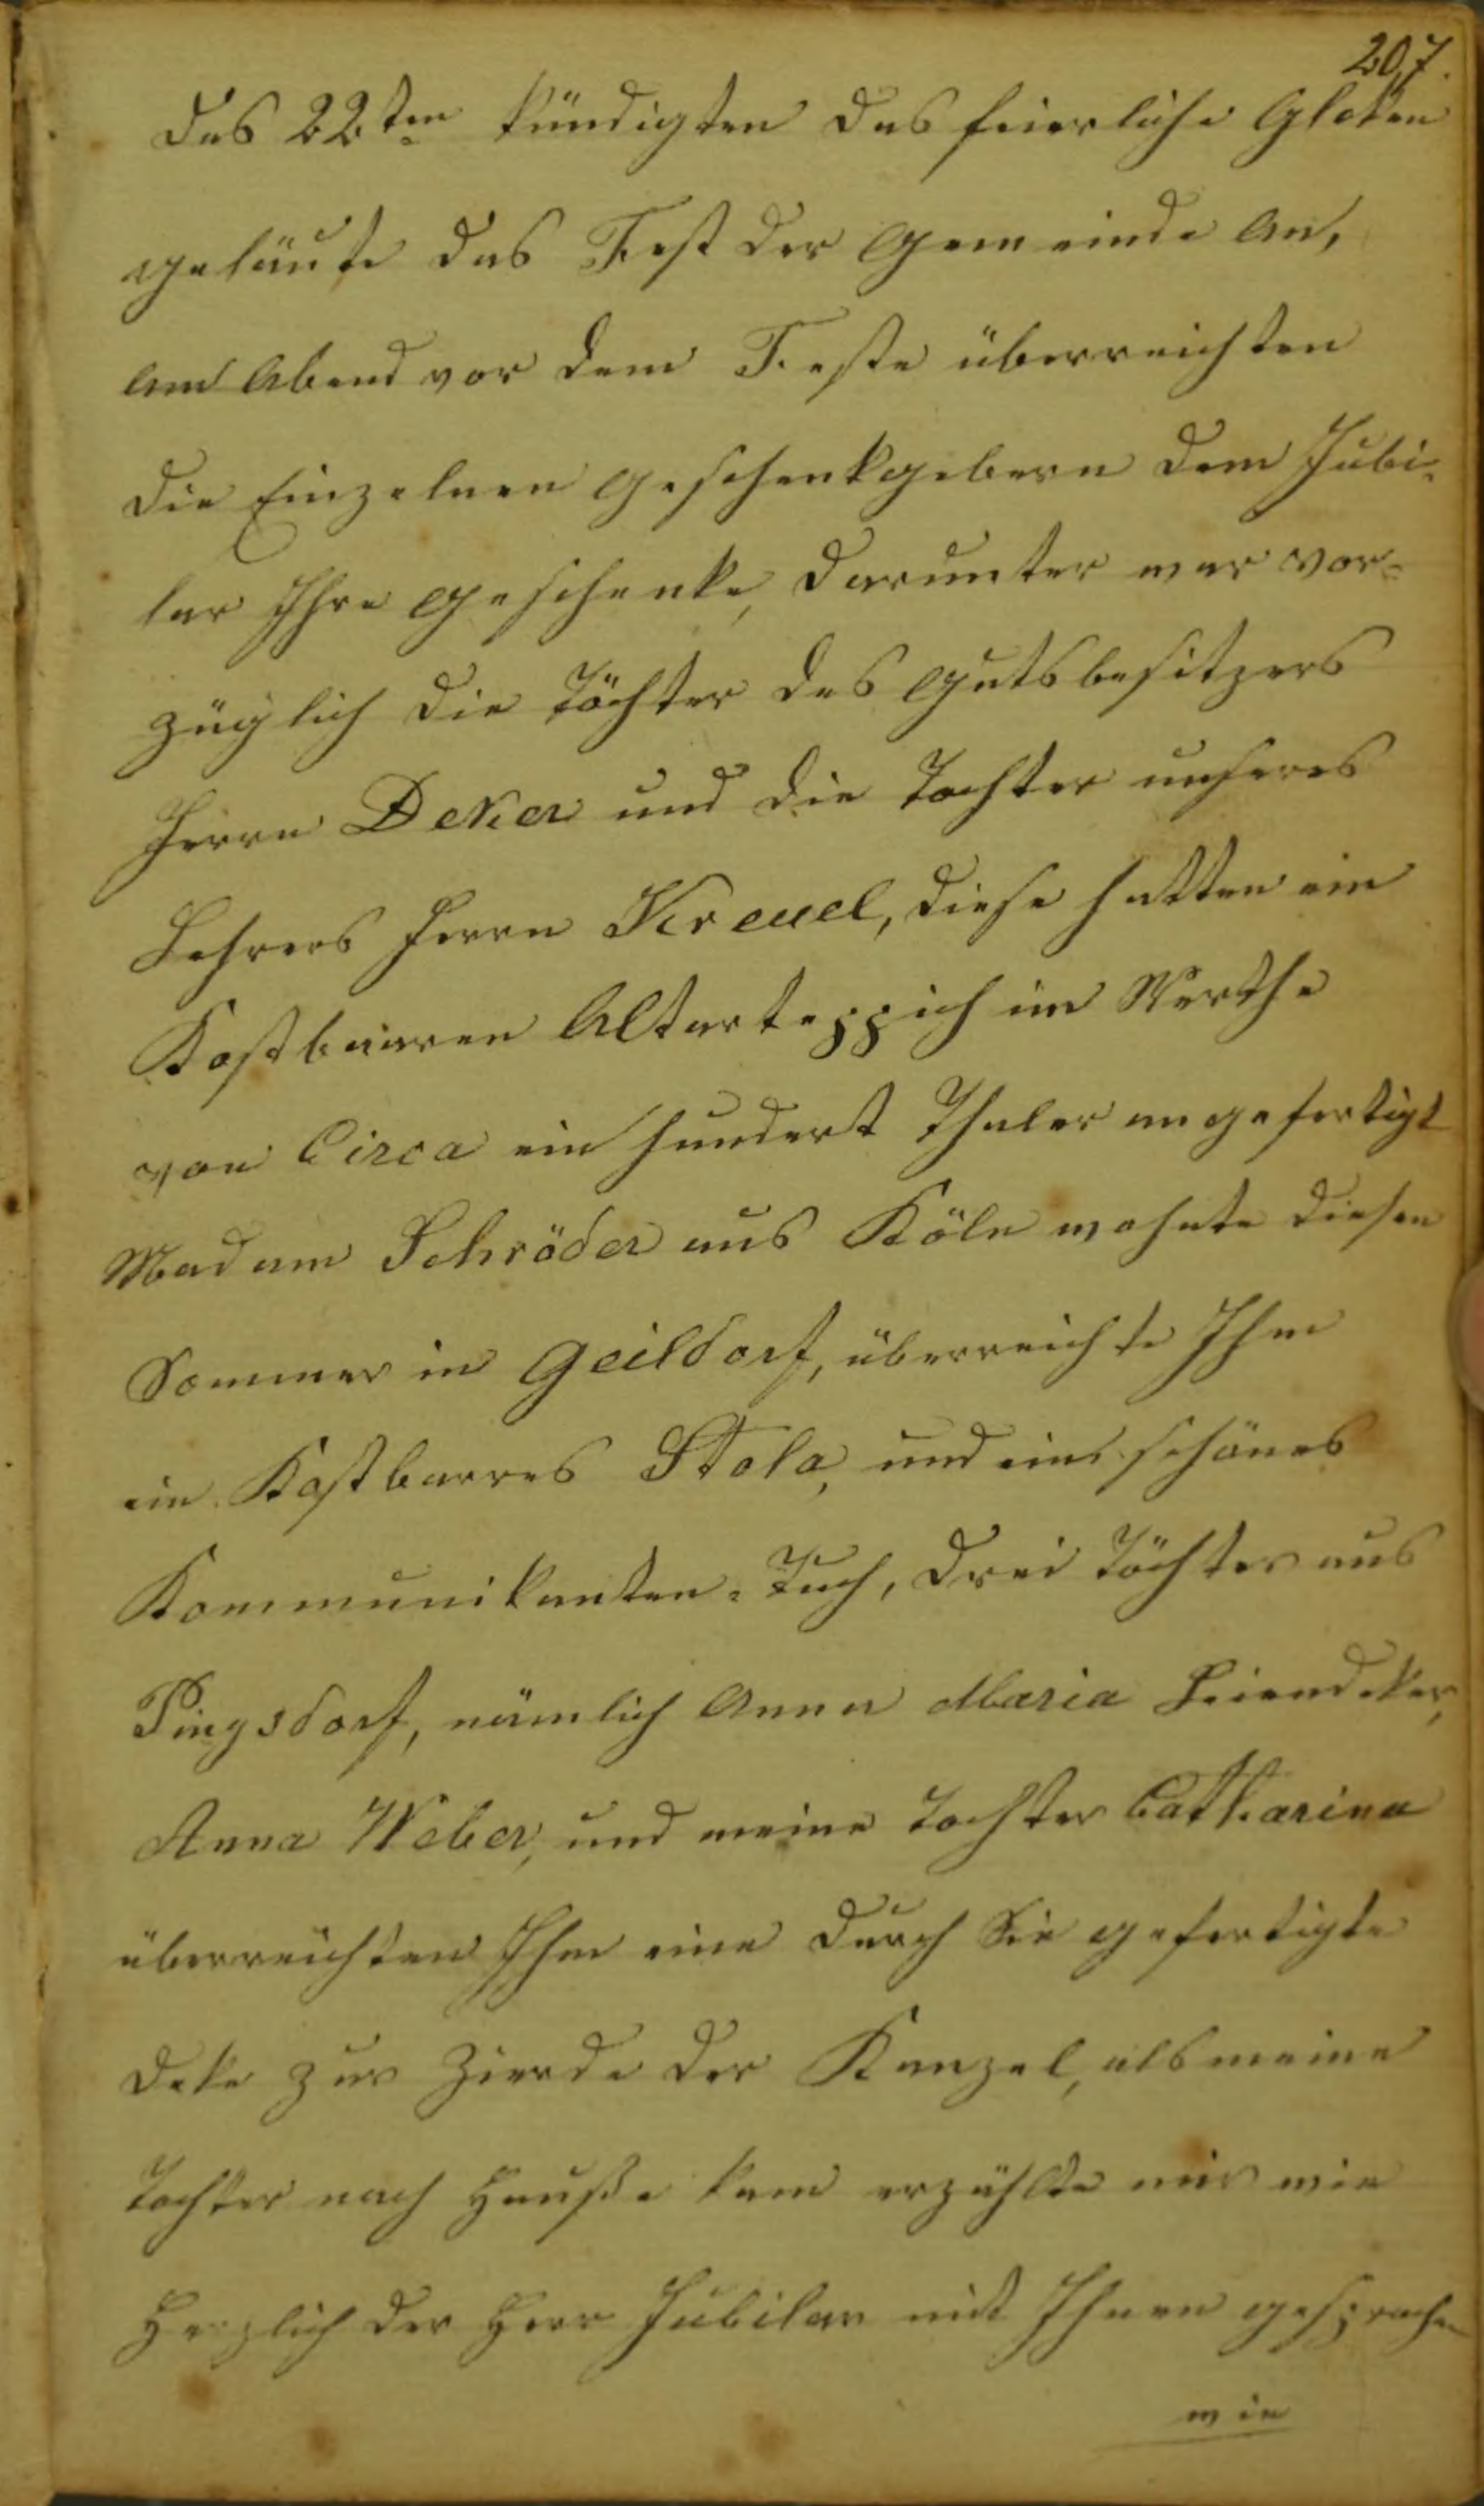 207.
des 22ten kündigten das feierliche Gloken
geläute das Fest der Gemeinde an,
am Abend vor dem Feste überreichten
die Einzelnen Geschenkgebern dem Jubi-
lar Ihre Geschenke, darunter war vor-
züglich die Töchter des Gutsbesitzers
Herrn Deker und die Tochter unseres
Lehrers Herrn Kreuel, diese hatten ein
Kostbaaren Altarteppich im Werthe
von Circa ein hundert Thaler angefertigt
Madam Schröder aus Köln wohnte diesen
Sommer in Geildorf, überreichte Ihm
ein Kostbarres Stola, und eine schönes
Kommunikanten-Tuch, drei Töchter aus
Pingsdorf, nämlich Anna Maria
Anna Weber, und meine Tochter Catharina
überreichten Ihm eine durch Sie gefertigte
Deke zur Zierde der Kanzel, als meine
Tochter nach Hauße kam erzählte mir wie
Herzlich der Herr Jubilar mit Ihnen gesprochen
wie